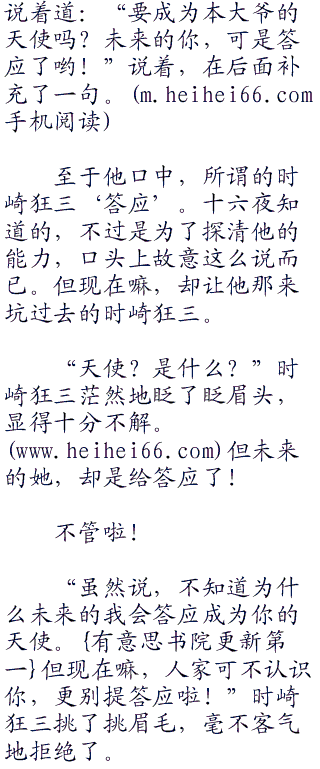 说着道：“要成为本大爷的
天使吗？未来的你，可是答
应了哟！”说着，在后面补
充了一句。(m.heihei66.com
手机阅读)
至于他口中，所谓的时
崎狂三‘答应’。十六夜知
道的，不过是为了探清他的
能力，口头上故意这么说而
已。但现在嘛，却让他那来
坑过去的时崎狂三。
“天使？是什么？”时
崎狂三茫然地眨了眨眉头，
显得十分不解。
(www.heihei66.com)但未来
的她，却是给答应了！
不管啦！
“虽然说，不知道为什
么未来的我会答应成为你的
天使。{有意思书院更新第
一}但现在嘛，人家可不认识
你，更别提答应啦！”时崎
狂三挑了挑眉毛，毫不客气
地拒绝了。